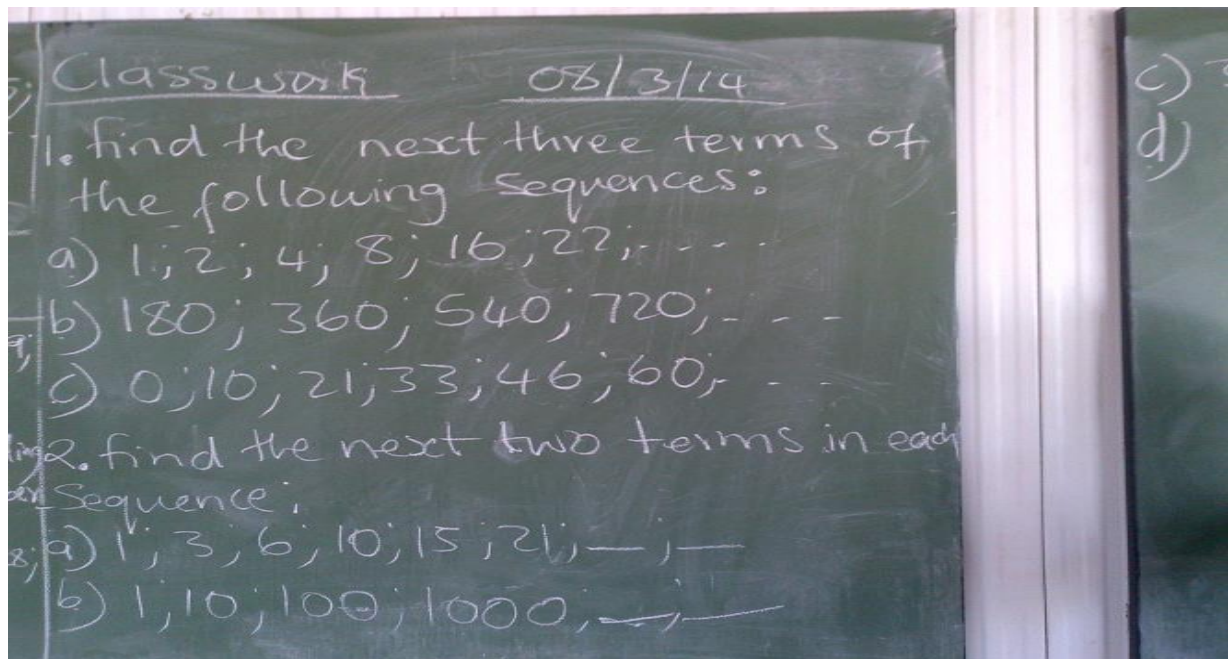 Classwork 08/3/14
1. find the next three terms of
the following sequences:
a) 1; 2; 4; 8; 16; 22; - - - -
b) 180; 360; 540; 720; - - -
c) 0; 10; 21; 33; 46; 60; - - -
2. find the next two terms in each
Sequence;
a) 1; 3; 6; 10; 15; 21; __; __
b) 1; 10; 100; 1000; __; __
c)
d)